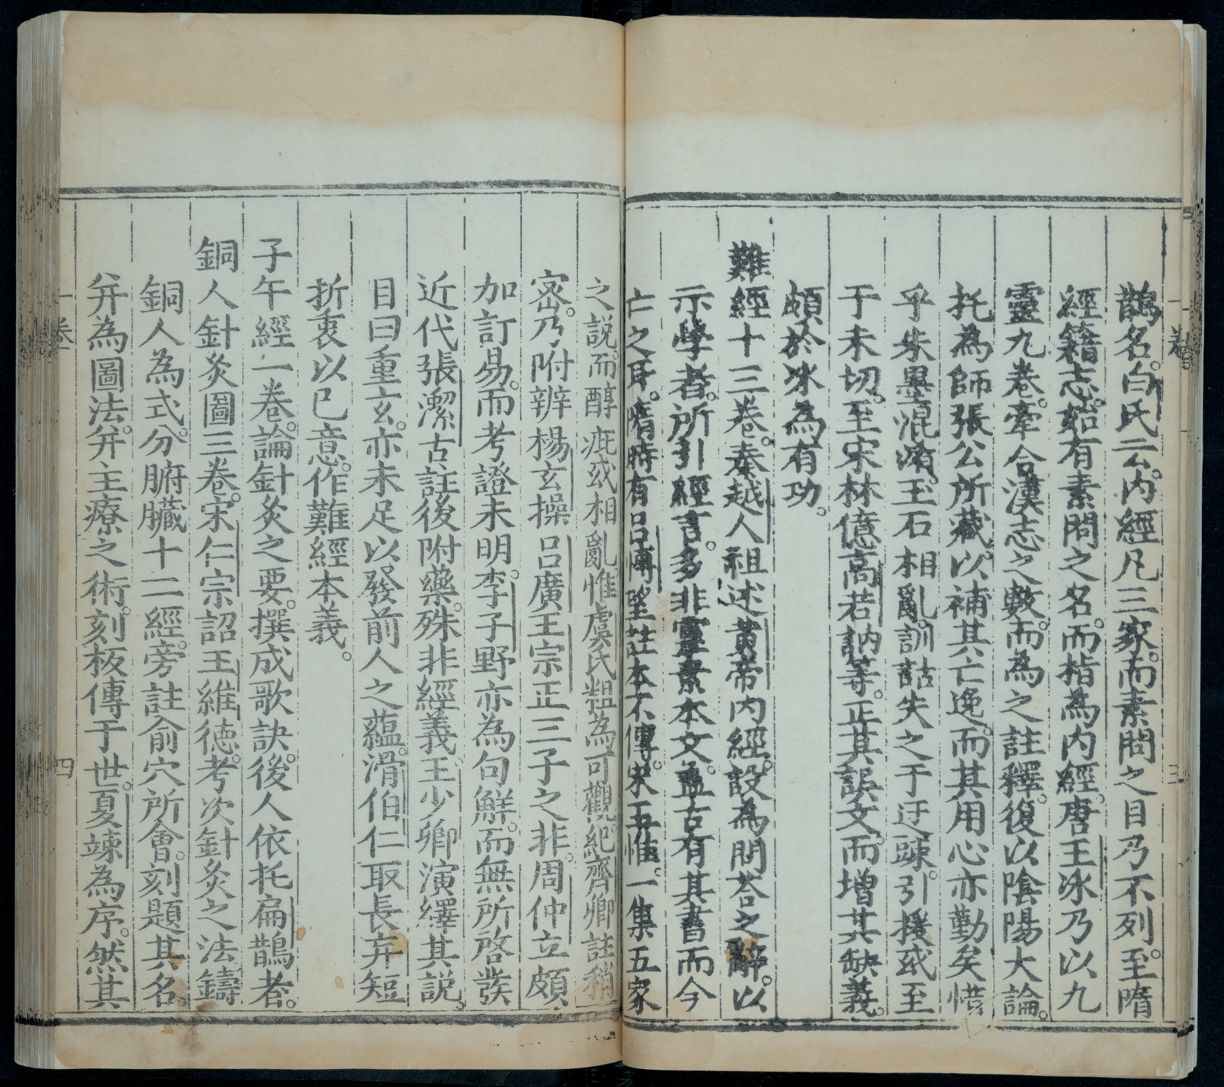 鵲名。白氏云。內經凡三家。而素問之目乃不列。至隋
經籍志。始有素問之名。而指為內經。唐王冰乃以九
靈九卷。牽合漢志之數。而為之註釋。復以陰陽大論。
托為師張公所藏。以補其亡逸。而其用心亦勤矣。惜
乎朱墨混淆。玉石相亂。訓詁失之于迂踈。引援或至
于未切。至宋林億高若訥等。正其誤文。而增其缺義。
頗於冰為有功。
難經十三卷。秦越人祖述黃帝內經。設為問荅之辭。以
示學者。所引經言。多非靈素本文。盖古有其書。而今
亡之耳。隋時有呂博望註本不傳。宋王惟一集五家
之說。而醇疵或相亂。惟虞氏粗為可觀。紀齊卿註稍
密。乃附辨楊玄操呂廣王宗正三子之非。周仲立頗
加訂易。而考證未明。李子野亦為句觧。而無所啓發
近代張潔古註後附藥。殊非經義。王少卿演繹其說。
目曰重玄。亦未足以發前人之蘊。滑伯仁取長弃短
折衷以已意。作難經本義。
子午經一卷。論針灸之要。撰成歌訣。後人依托扁鵲者。
銅人針灸圖三卷。宋仁宗詔王維德。考次針灸之法。鑄
銅人為式。分腑臟十二經。旁註俞穴所會。刻題其名。
并為圖法。并主療之術。刻板傳于世。夏竦為序。然其
一卷
四
一卷
三